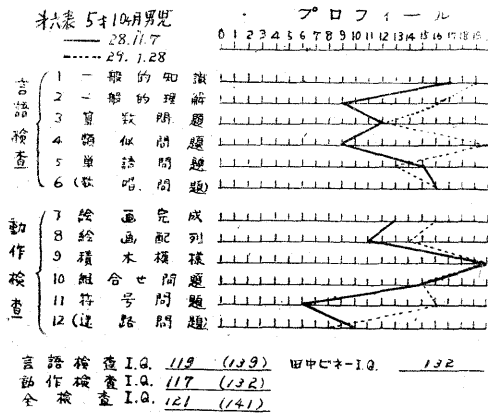 第六表 5才10ヶ月男児
プロフィール
28.11.7
29.1.28
0 1 2 3 4 5 6 7 8 9 10 11 12 13 14 15 16 17 18 19
言語検査
1 一般的知識
2 一般的理解
3 算数問題
4 類似問題
5 単語問題
6 (数唱問題)
動作検査
7 絵画完成
8 絵画配列
9 積木模様
10 組合せ問題
11 符号問題
12 (迷路問題)
言語検査I.Q. 119 (139) 田中ビネーI.Q. 132
動作検査I.Q. 117 (132)
全検査I.Q. 121 (141)